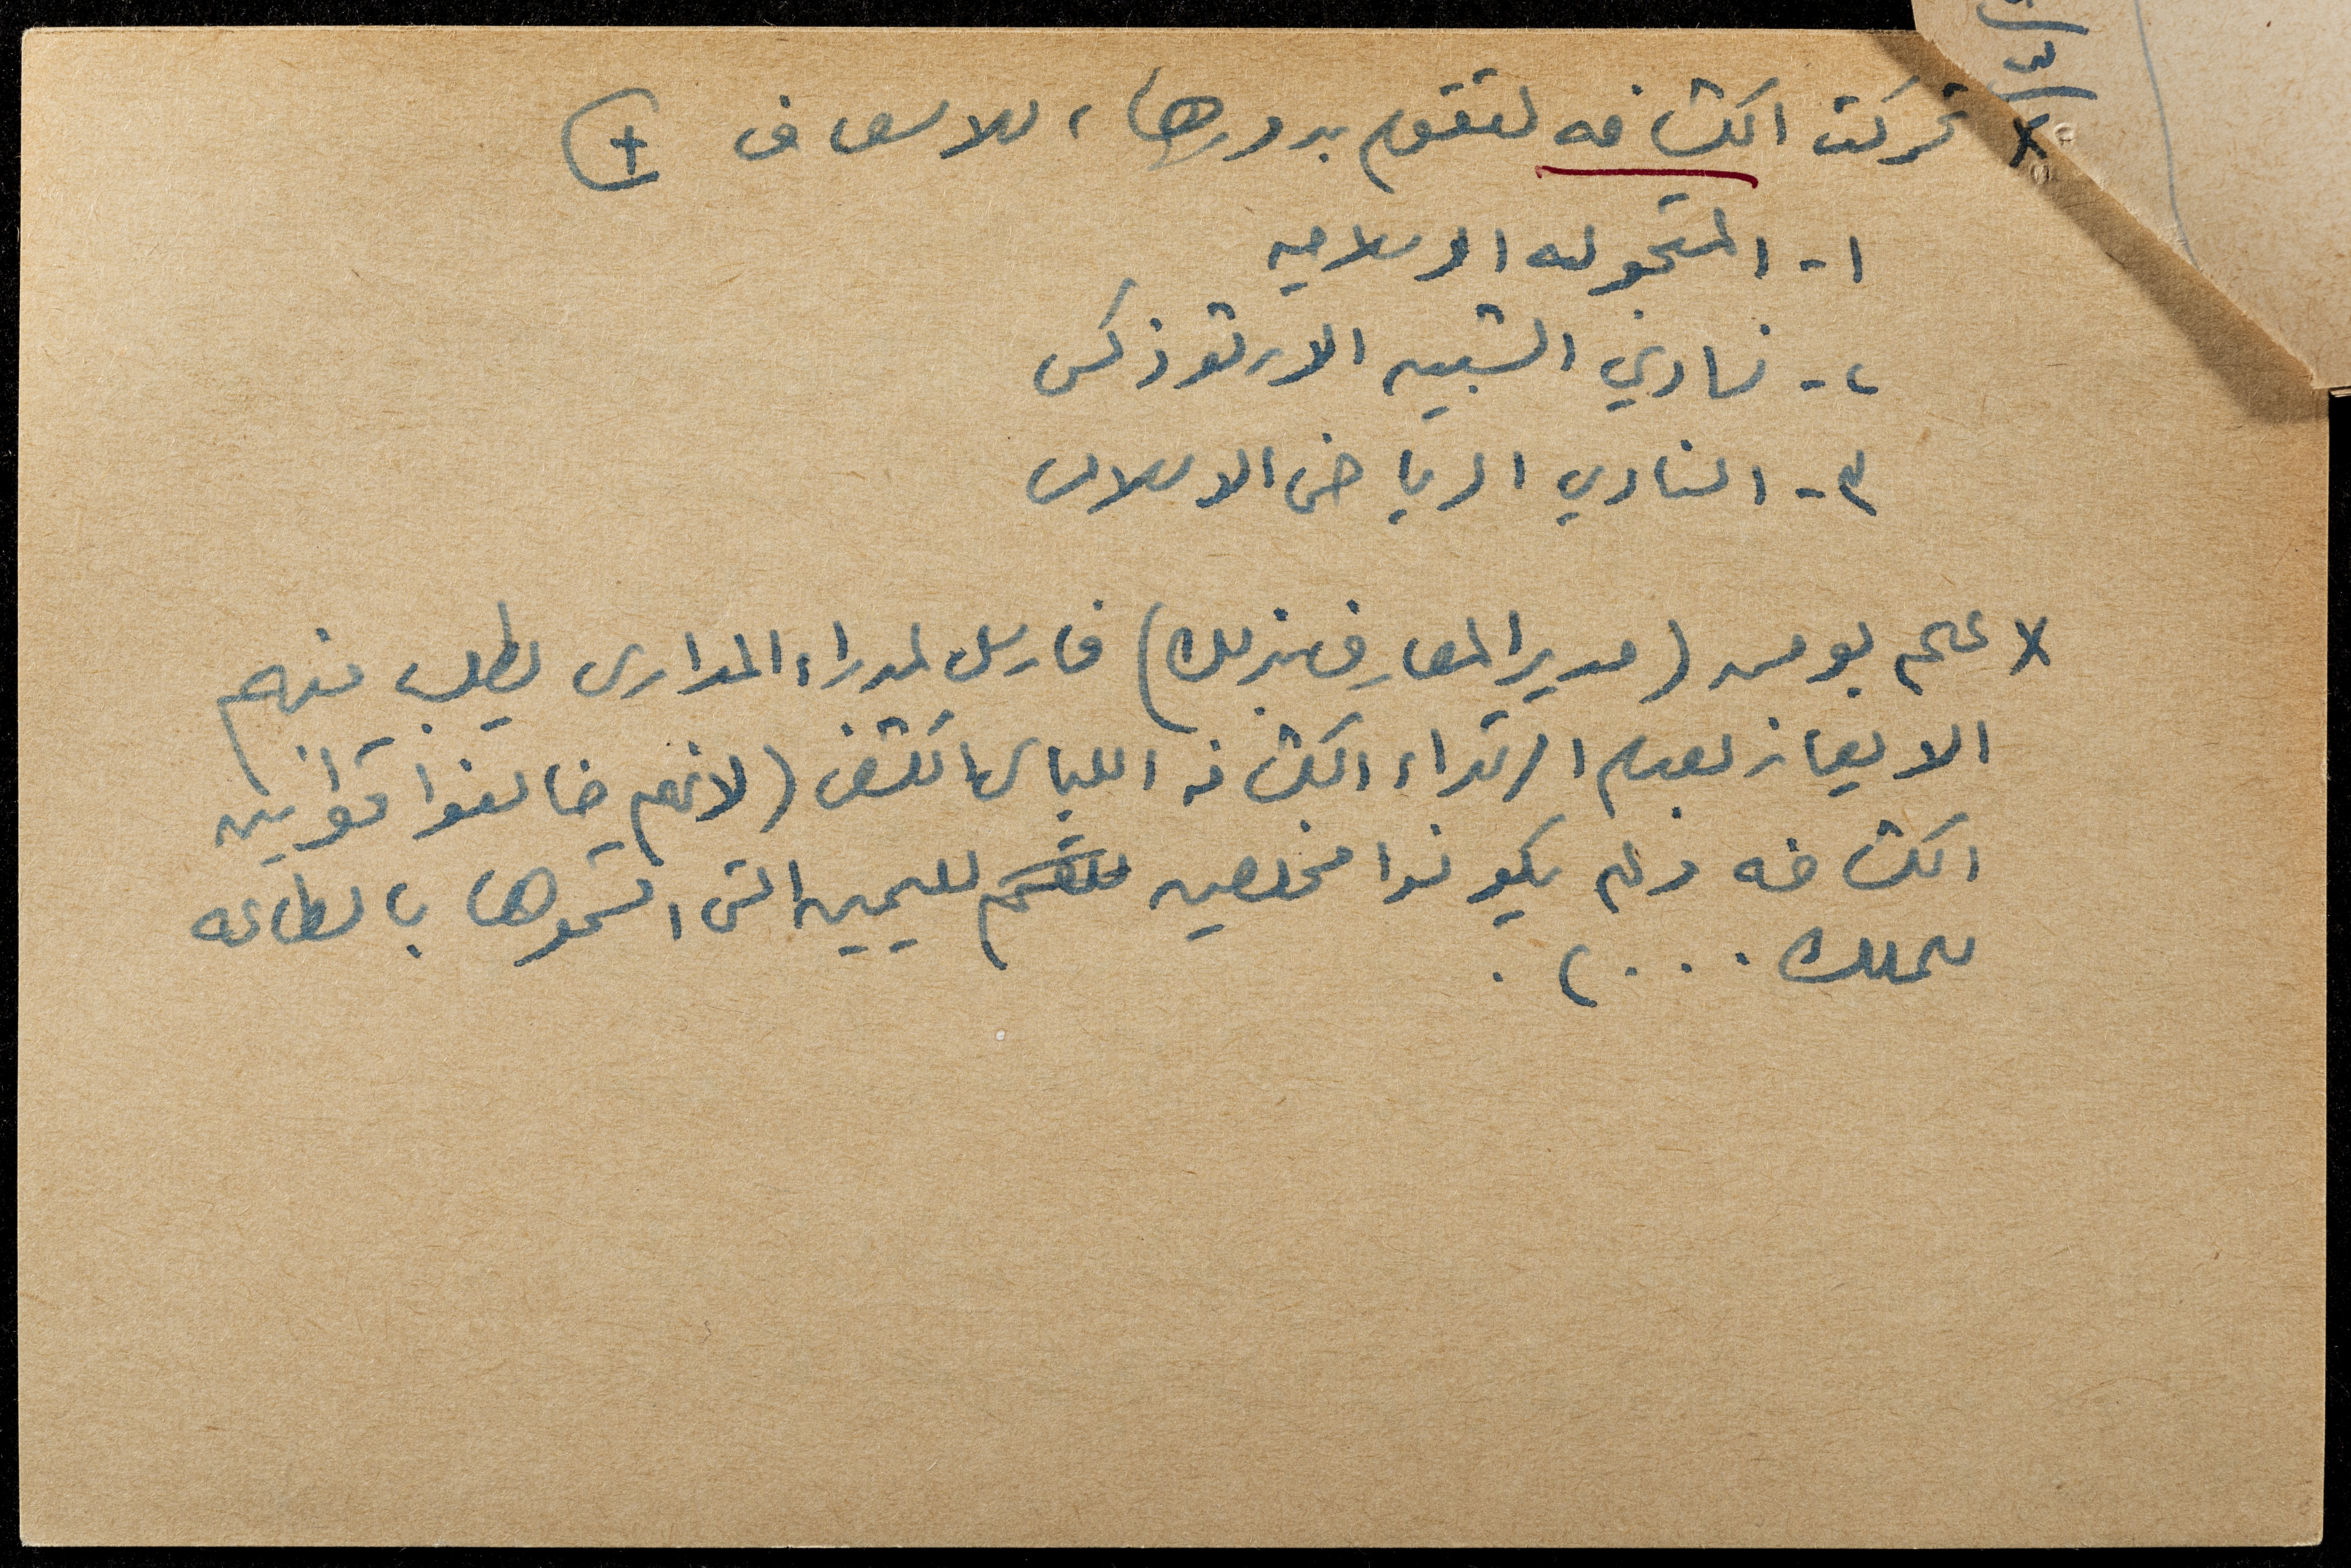 x تحركت الكشافه لتقوم بدورها، للاسعاف +
١- المتجوله الاسلاميه
٢- نادي الشبيبه الارثوذكسي
٣- النادي الرياضي الاسلامي
x علم بومن (مدير المعارف بذلك) فارسل لمدراء المدارس يطلب منهم
الايعاز بعدم ارتداء الكشافه اللباس الكشفي (لانهم خالفوا قوانين
الكشافه ولم يكونوا مخلصين لليمين التي اقسموها بالطاعه
للملك . . . ) .